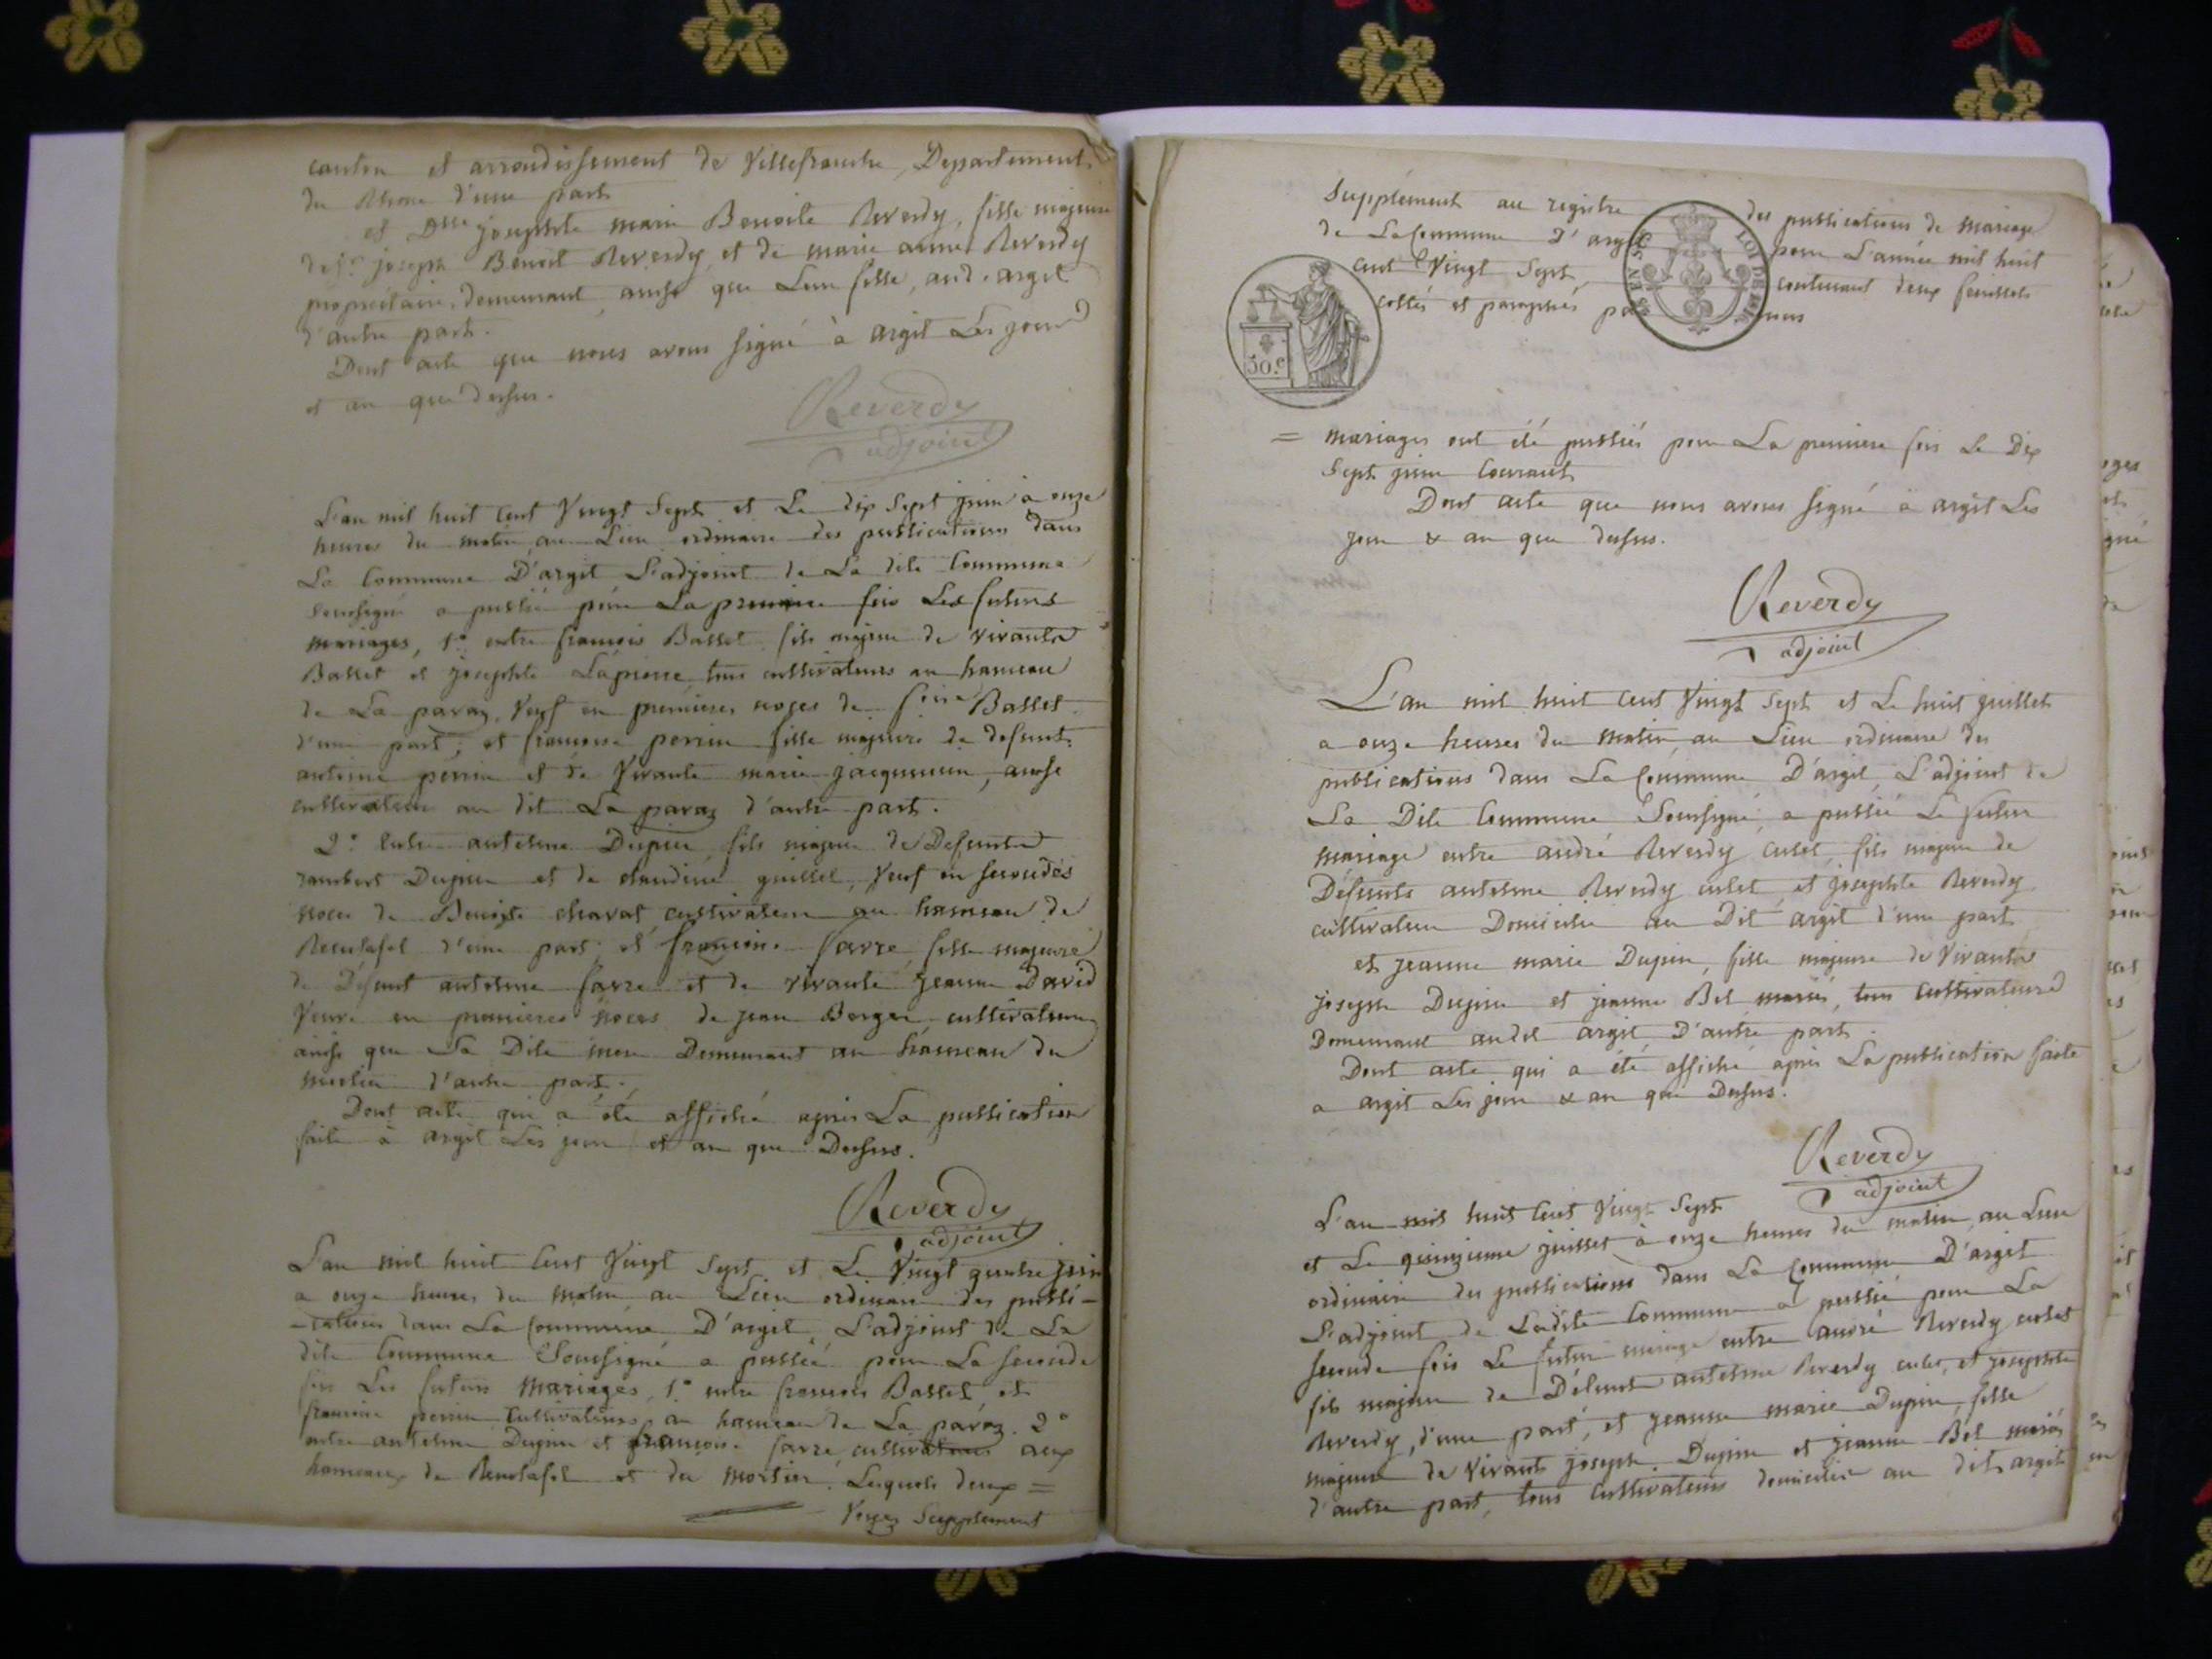 canton et arrondissement de Villefranche, Departement
du Rhone d'une part
et Dlle josephte marie Benoite Reverdy, fille majeure
de Sr joseph Benoit Reverdy et de marie anne Reverdy
proprietaire, demeurant ainsi que Leur fille, audit argit
d'autre part.
Dont acte que nous avons signé à argit Les jour
et an que dessus.
Reverdy
adjoint
L'an mil huit Cent Vingt Sept et Le dix Sept juin a onze
heures du matin au Lieu ordinaire des publications dans
La Commune D'argit L'adjoint de La dite Commune
soussigné a publié pour La premiere fois Les futurs
mariages, 1º entre francois Basset fils majeur de vivants
Basset et josephte Lapierre tous cultivateurs au hameau
de La paraz, Veuf en premieres noces de Basset
d'une part; et francoise perrin fille majeure de defunt
antoine perrin et de Vivante marie jacquemin, aussi
cultivateurs au dit La paraz d'autre part.
2º Entre antelme Dupin fils majeur de Defunts
rambert Dupin et de claudine guillet, Veuf en secondes
noces de Benoite charat cultivateur au hameau de
Reculafol d'une part; et francoise favre fille majeure
de Défunt antelme favre et de vivante jeanne David
Veuve en premieres noces de jean Berger cultivateurs
ainsi que Sa Dite mere Demeurant au hameau du
mortier d'autre part.
Dont acte qui a été affiché apres La publication
faite à argit Les jour et an que Dessus.
Reverdy
adjoint
L'an mil huit Cent Vingt Sept et Le Vingt quatre juin
a onze heures du matin au Lieu ordinaire des publi-
-cations dans La Commune D'argit, L'adjoint de La
dite Commune Soussigné a publié pour La seconde
fois Les futurs mariages, 1º entre francois Basset et
francoise perrin Cultivateurs au hameau de La paraz. 2º
entre antelme Dupin et francoise favre cultivateurs aux
hameaux de Reculafol et du mortier. Lesquels deux =
Voyez Supplement
Supplément au registre des publications de mariage
de La Commune D'argit pour L'année mil huit
cent Vingt Sept, contenant deux feuillets
cottés et paraphés par nous
50.c
LOI DE
= mariages ont été publiés pour La premiere fois Le Dix
Sept juin Courant
Dont acte que nous avons signé à argit Les
jour & an que dessus.
Reverdy
adjoint
L'an mil huit Cent Vingt Sept et Le huit juillet
a onze heures du matin au Lieu ordinaire des
publications dans La Commune D'argit, L'adjoint de
La Dite Commune Soussigné, a publié Le futur
mariage entre andré Reverdy culet, fils majeur de
Défunts antelme Reverdy culet et josephte Reverdy
cultivateur Domicilié au Dit argit d'une part
et jeanne marie Dupin, fille majeure de Vivants
joseph Dupin et jeanne Bel mariés, tous Cultivateurs
Demeurant au dit argit D'autre part.
Dont acte qui a été affiché apres La publication faite
a argit Les jour & an que Dessus.
Reverdy
adjoint
L'an mil huit Cent Vingt Sept
et Le quinzieme juillet à onze heures du matin au Lieu
ordinaire des publications dans La Commune D'argit
L'adjoint de Ladite Commune a publié pour La
seconde fois Le futur mariage entre andré Reverdy culet
fils majeur de Défunt antelme Reverdy culet, et josephte
Reverdy, d'une part, et jeanne marie Dupin, fille
majeure de Vivants joseph Dupin et jeanne Bel mariés
d'autre part, tous Cultivateurs domiciliés au dit argit